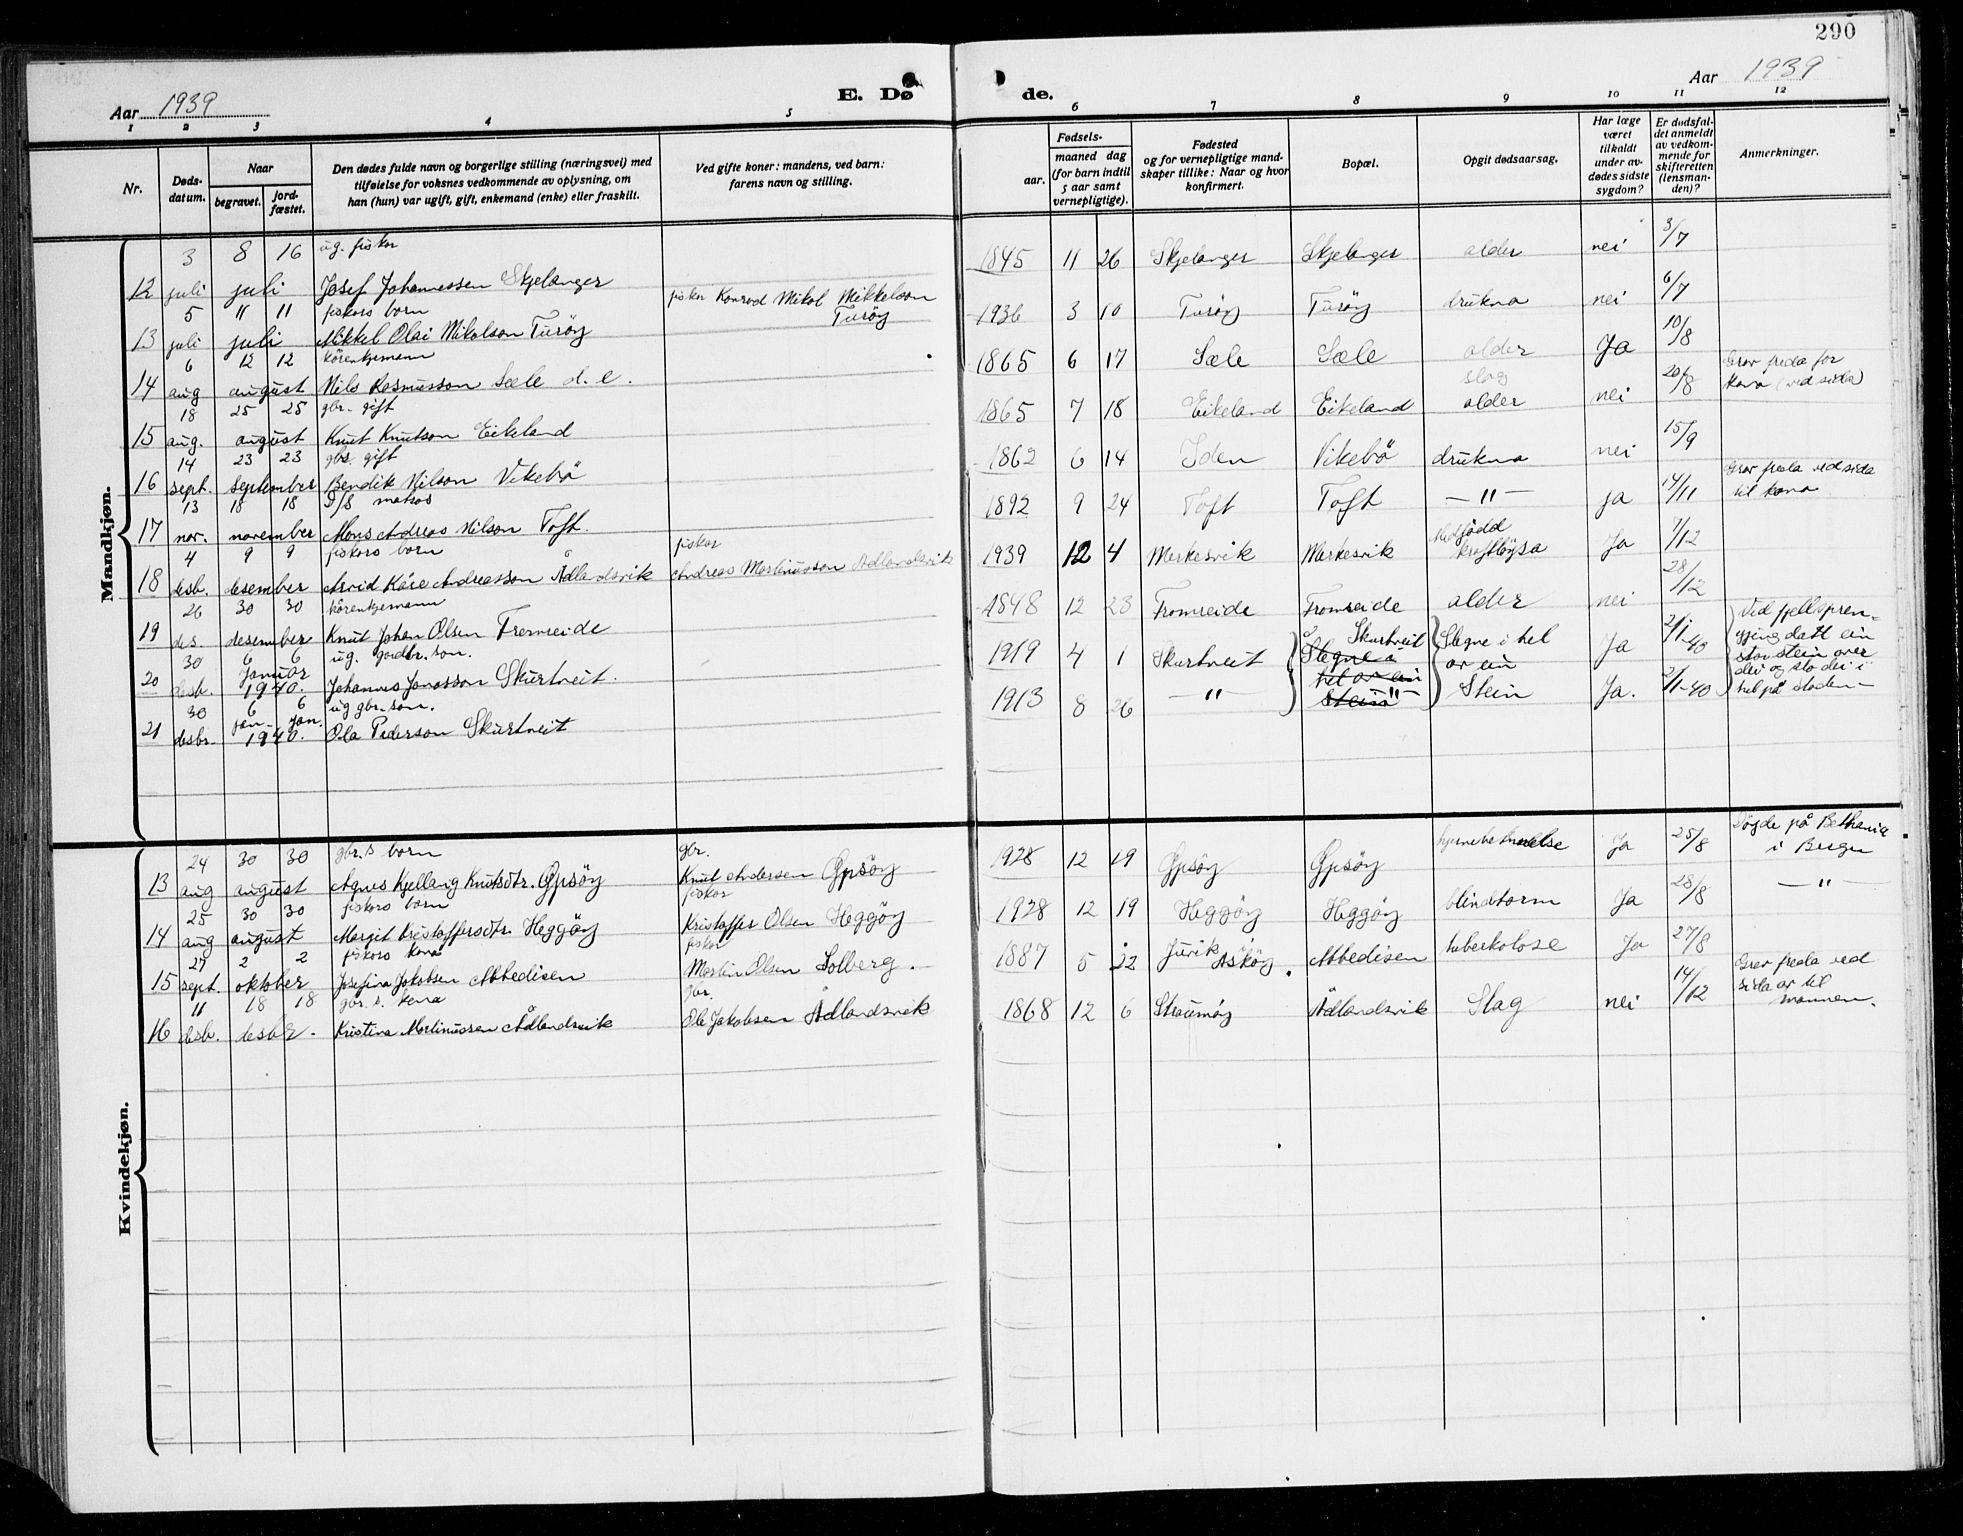 290
Aar 1939
E. Dø
de.
Aar 1939
1 2 3 4 5 6 7 8 9 10 11 12
Nr.
Døds-
datum.
Naar
begravet.
jord-
fæstet.
Den dødes fulde navn og borgerlige stilling (næringsvei) med
tilføielse for voksnes vedkommende av oplysning, om
han (hun) var ugift, gift, enkemand (enke) eller fraskilt.
Ved gifte koner: mandens, ved barn:
farens navn og stilling.
Fødsels-
aar.
maaned dag
(for barn indtil
5 aar samt
vernepligtige).
Fødested
og for vernepligtige mand-
skaper tillike: Naar og hvor
konfirmert.
Bopæl.
Opgit dødsaarsag.
Har læge
været
tilkaldt
under av-
dødes sidste
sygdom?
Er dødsfal-
det anmeldt
av vedkom-
mende for
skifteretten
(lensman-
den)?
Anmerkninger.
Mandkjøn.
3 8 16 ug. fiskar
12 juli juli Josef Johannessen Skjelanger 1845 11 26 Skjelanger Skjelanger alder nei 3/7
5 11 11 fiskars born fiskar Konrad Mikal Mikkelson
13 juli juli Mikkel Olai Mikalson Turöy Turöy 1936 3 10 Turöy Turöy drukna nei 6/7
6 12 12 kårenkjemann
14 aug august Nils Rasmusson Sæle d. e. 1865 6 17 Sæle Sæle alder Ja 10/8 Grav freda for
kona (ved sida)
18 25 25 gbr. gift
15 aug. august Knut Knutson Eikeland 1865 7 18 Eikeland Eikeland slag
alder nei 20/8
14 23 23 gbr. gift
16 sept. september Bendik Nilson Vikebö 1862 6 14 Iden Vikebö drukna nei 15/9
13 18 18 D/S matros
17 nov. november Mons Andreas Nilson Toft. 1892 9 24 Toft Toft — " — ja 14/11 Grav freda ved sida
til kona
4 9 9 fiskars born fiskar
18 desb. desember Arvid Kåre Andreasson Ådlandsvik Andreas Martinusson Ådlandsvik 1939 12 4 Merkesvik Merkesvik Medfödd
kraftlöysa Ja 7/12
26 30 30 kårenkjemann
19 des. desember Knut Johan Olsen Fromreide 1848 12 23 Fromreide Fromreide alder nei 28/12
30 6 6 ug. gardbr. son.
20 desb. Januar
1940. Johannes Jonasson Skurtveit. 1919 4 1 Skurtveit Skurtveit
Slegne i
hel av ein
Stein Slegne i hel
av ein
Stein Ja 2/1-40 Ved fjellspren-
gjing datt ein
stor stein over
dei og slo dei i
hel på staden —
30 6 6 ug gbr. son.
21 desbr. jan. jan.
1940. Ola Pederson Skurtveit 1913 8 26 — " — — " — Ja. 2/1-40
Kvindekjøn.
24 30 30 gbr.s born gbr.
13 aug august Agnes Kjellaug Knutsdtr. Öpsöy Knut Andersen Öpsöy 1928 12 19 Öpsöy Öpsöy hjernebetendelse Ja 25/8 Döyde på Bethania
i Bergen
25 30 30 fiskars born fiskar
14 aug august Margit Kristoffersdtr. Heggöy Kristoffer Olsen Heggöy 1928 12 19 Heggöy Heggöy blindtarm Ja 28/8 — " —
27 2 2 fiskars kona fiskar
15 sept. oktober Josefina Jakobsen Abbedisen Martin Olsen Solberg. 1887 5 22 Juvik Askøy. Abbedisen tuberkolose Ja 27/8
11 18 18 gbr. s. kona gbr.
16 desb. desbr. Kristina Martinussen Ådlandsvik Ole Jakobsen Ådlandsvik 1868 12 6 Straumöy Ådlandsvik Slag nei 14/12 Grav freda ved
sida av til
mannen.